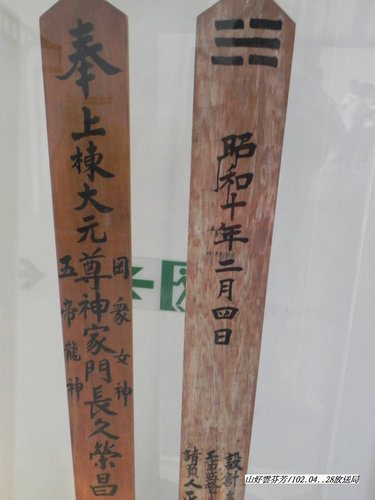 奉上棟大元尊神家門長久榮昌
岡象女神
五帝龍神
昭和十年二月四日
設計
請負人
山好雲芬芳/102.04..28放送局